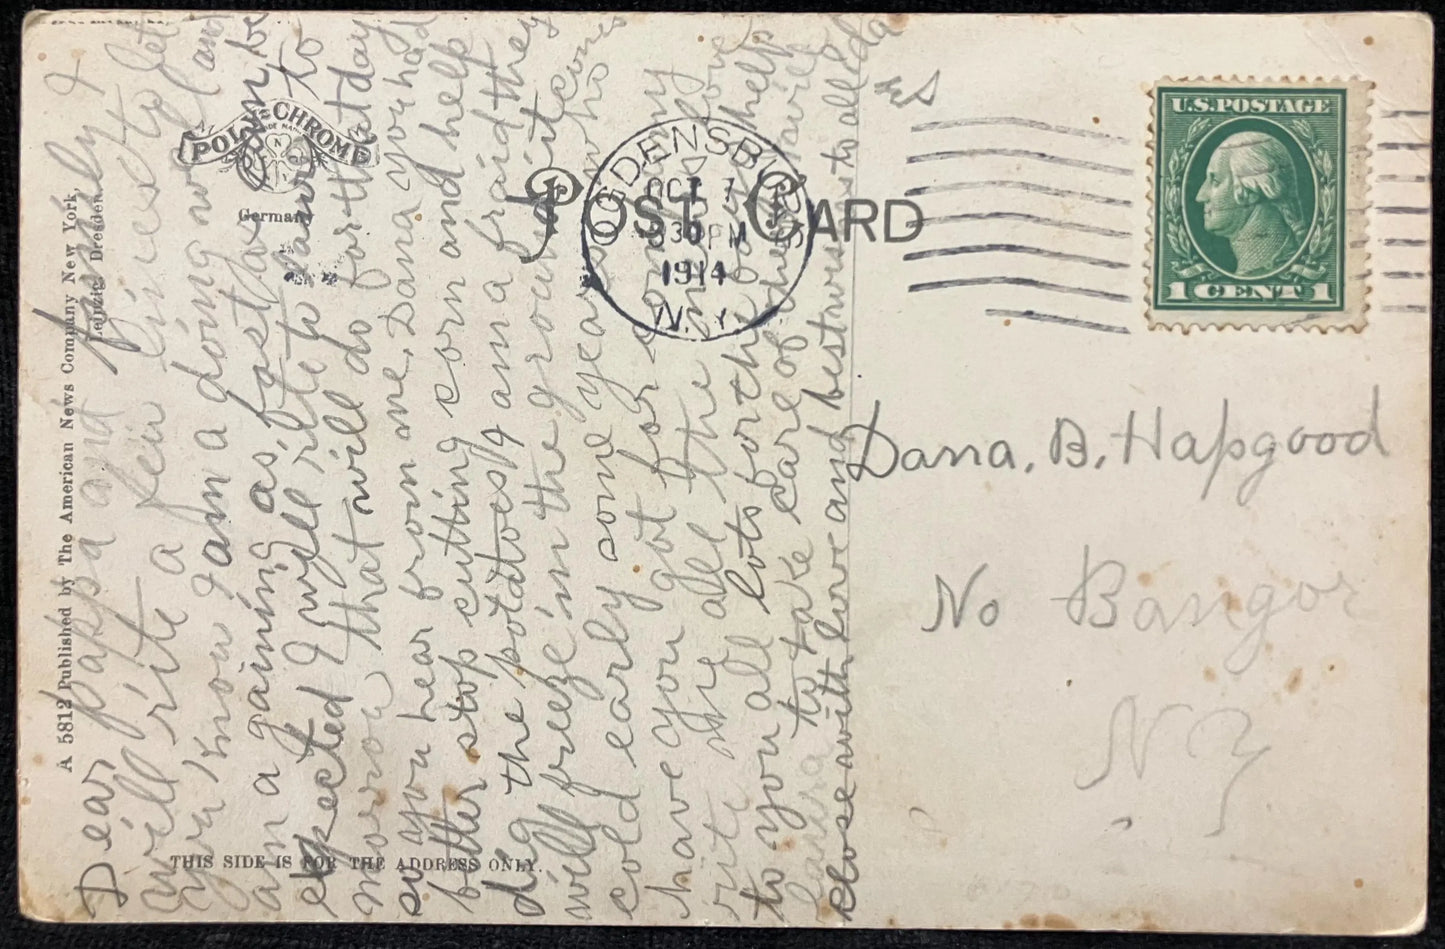 POLY-CHROME
TRADE MARK
N
Germany
POST CARD
OGDENSBURG
OCT 7
830PM
1914
N.Y.
U.S. POSTAGE
1 CENT 1
A 5812 Published by The American News Company New York,
Leipzig Dresden
THIS SIDE IS FOR THE ADDRESS ONLY.
Dear papa and family I
will rite a few lines to let
you know I am a doing well and
am a gaining as fast as can be
expected I will rite to laura to
morow that will do for that day
so you hear from me. Dana you had
better stop cutting corn and help
dig the potatoes I am afraid they
will freeze in the ground it comes
cold early some years who
have you got for company
rite me all the news love
to you all lots for the baby help
laura to take care of
close with love and best wishes to all da
Dana. B. Hapgood
No Bangor
N Y